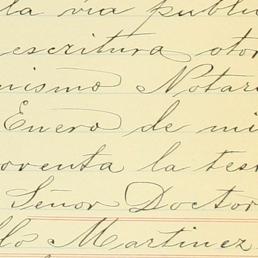 la via public
escritura otor
mismo Notari
Enero de mi
noventa la tes
Señor Doctor
llo Martinez